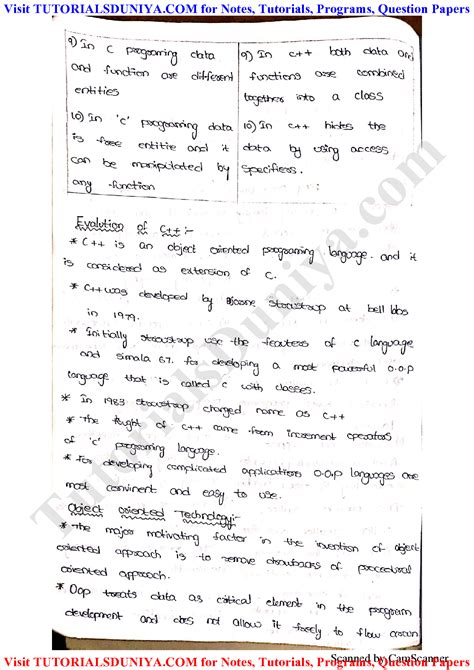 Visit TUTORIALSDUNIYA.COM for Notes, Tutorials, Programs, Question Papers
9) In C programing data
and function are different
entities
9) In c++ both data and
functions are combined
together into a class
10) In 'c' programing data
is free entitie and it
can be manipulated by
any function
10) In c++ hides the
data by using access
Specifiers.
Evolution of C++ :-
* C++ is an object oriented programing language. and it
is considered as extension of C.
* C++ was developed by Bjarne Stroustrup at bell labs
in 1979.
* Initially stroustrup use the feauters of c language
and simala 67. for developing a most powerful o.o.p
language that is called c with classes.
* In 1983 stroustrup changed name as C++
* The thught of c++ came from increment operators
of 'c' programing language.
* For developing complicated applications o.o.p languages are
most convinent and easy to use.
Object oriented Technology:-
* The major motivating factor in the invention of object
oriented approach is to remove drawbacks of procedural
oriented approach.
* Oop treats data as critical element in the program
development and does not allow it freely to flow
TutorialsDuniya.com
Scanned by CamScanner
Visit TUTORIALSDUNIYA.COM for Notes, Tutorials, Programs, Question Papers